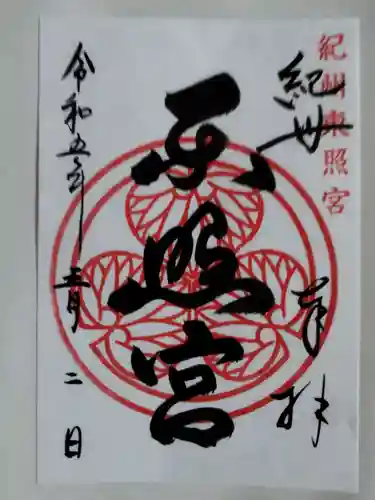 紀州東照宮
紀州
奉拝
東照宮
令和五年
三月
二日